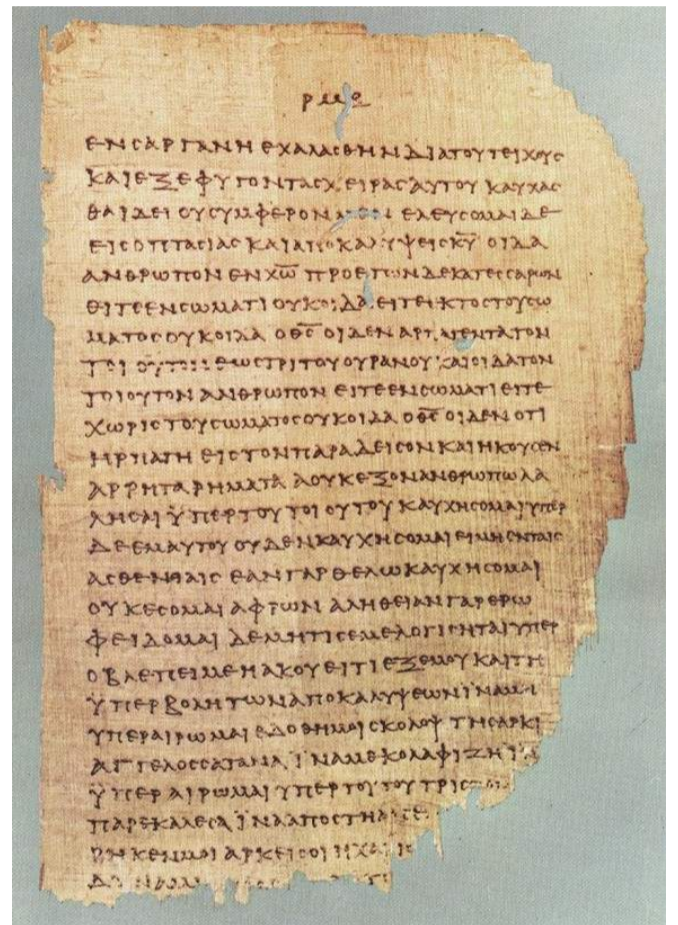 ρμε
ΕΝϹΑΡΓΑΝΗΕΧΑΛΑϹΘΗΝΔΙΑΤΟΥΤΕΙΧΟΥϹ
ΚΑΙΕΞΕΦΥΓΟΝΤΑϹΧΕΙΡΑϹΑΥΤΟΥΚΑΥΧΑϹ
ΘΑΙΔΕΙΟΥϹΥΜΦΕΡΟΝΜΕΝΕΛΕΥϹΟΜΑΙΔΕ
ΕΙϹΟΠΤΑϹΙΑϹΚΑΙΑΠΟΚΑΛΥΨΕΙϹΚ̅Υ̅ΟΙΔΑ
ΑΝΘΡΩΠΟΝΕΝΧ̅Ω̅ΠΡΟΕΤΩΝΔΕΚΑΤΕϹϹΑΡΩΝ
ΕΙΤΕΕΝϹΩΜΑΤΙΟΥΚΟΙΔΑΕΙΤΕΕΚΤΟϹΤΟΥϹΩ
ΜΑΤΟϹΟΥΚΟΙΔΑΟΘ̅Ϲ̅ΟΙΔΕΝΑΡΠΑΓΕΝΤΑΤΟΝ
ΤΟΙΟΥΤΟΝΕΩϹΤΡΙΤΟΥΟΥΡΑΝΟΥΚΑΙΟΙΔΑΤΟΝ
ΤΟΙΟΥΤΟΝΑΝΘΡΩΠΟΝΕΙΤΕΕΝϹΩΜΑΤΙΕΙΤΕ
ΧΩΡΙϹΤΟΥϹΩΜΑΤΟϹΟΥΚΟΙΔΑΟΘ̅Ϲ̅ΟΙΔΕΝΟΤΙ
ΗΡΠΑΓΗΕΙϹΤΟΝΠΑΡΑΔΕΙϹΟΝΚΑΙΗΚΟΥϹΕΝ
ΑΡΡΗΤΑΡΗΜΑΤΑΑΟΥΚΕΞΟΝΑΝΘΡΩΠΩΛΑ
ΛΗϹΑΙΫΠΕΡΤΟΥΤΟΙΟΥΤΟΥΚΑΥΧΗϹΟΜΑΙΥΠΕΡ
ΔΕΕΜΑΥΤΟΥΟΥΔΕΝΚΑΥΧΗϹΟΜΑΙΕΙΜΗΕΝΤΑΙϹ
ΑϹΘΕΝΕΙΑΙϹΕΑΝΓΑΡΘΕΛΩΚΑΥΧΗϹΟΜΑΙ
ΟΥΚΕϹΟΜΑΙΑΦΡΩΝΑΛΗΘΕΙΑΝΓΑΡΕΡΩ
ΦΕΙΔΟΜΑΙΔΕΜΗΤΙϹΕΜΕΛΟΓΙϹΗΤΑΙΥΠΕΡ
ΟΒΛΕΠΕΙΜΕΗΑΚΟΥΕΙΤΙΕΞΕΜΟΥΚΑΙΤΗ
ΫΠΕΡΒΟΛΗΤΩΝΑΠΟΚΑΛΥΨΕΩΝΪΝΑΜΗ
ΥΠΕΡΑΙΡΩΜΑΙΕΔΟΘΗΜΟΙϹΚΟΛΟΨΤΗϹΑΡΚΙ
ΑΓΓΕΛΟϹϹΑΤΑΝΑΪΝΑΜΕΚΟΛΑΦΙΖΗΪΝΑ
ΫΠΕΡΑΙΡΩΜΑΙΥΠΕΡΤΟΥΤΟΥΤΡΙϹ
ΠΑΡΕΚΑΛΕϹΑΪΝΑΑΠΟϹΤΗΑΠΕ
ΡΗΚΕΝΜΟΙΑΡΚΕΙϹΟΙΗΧΑΡΙϹ